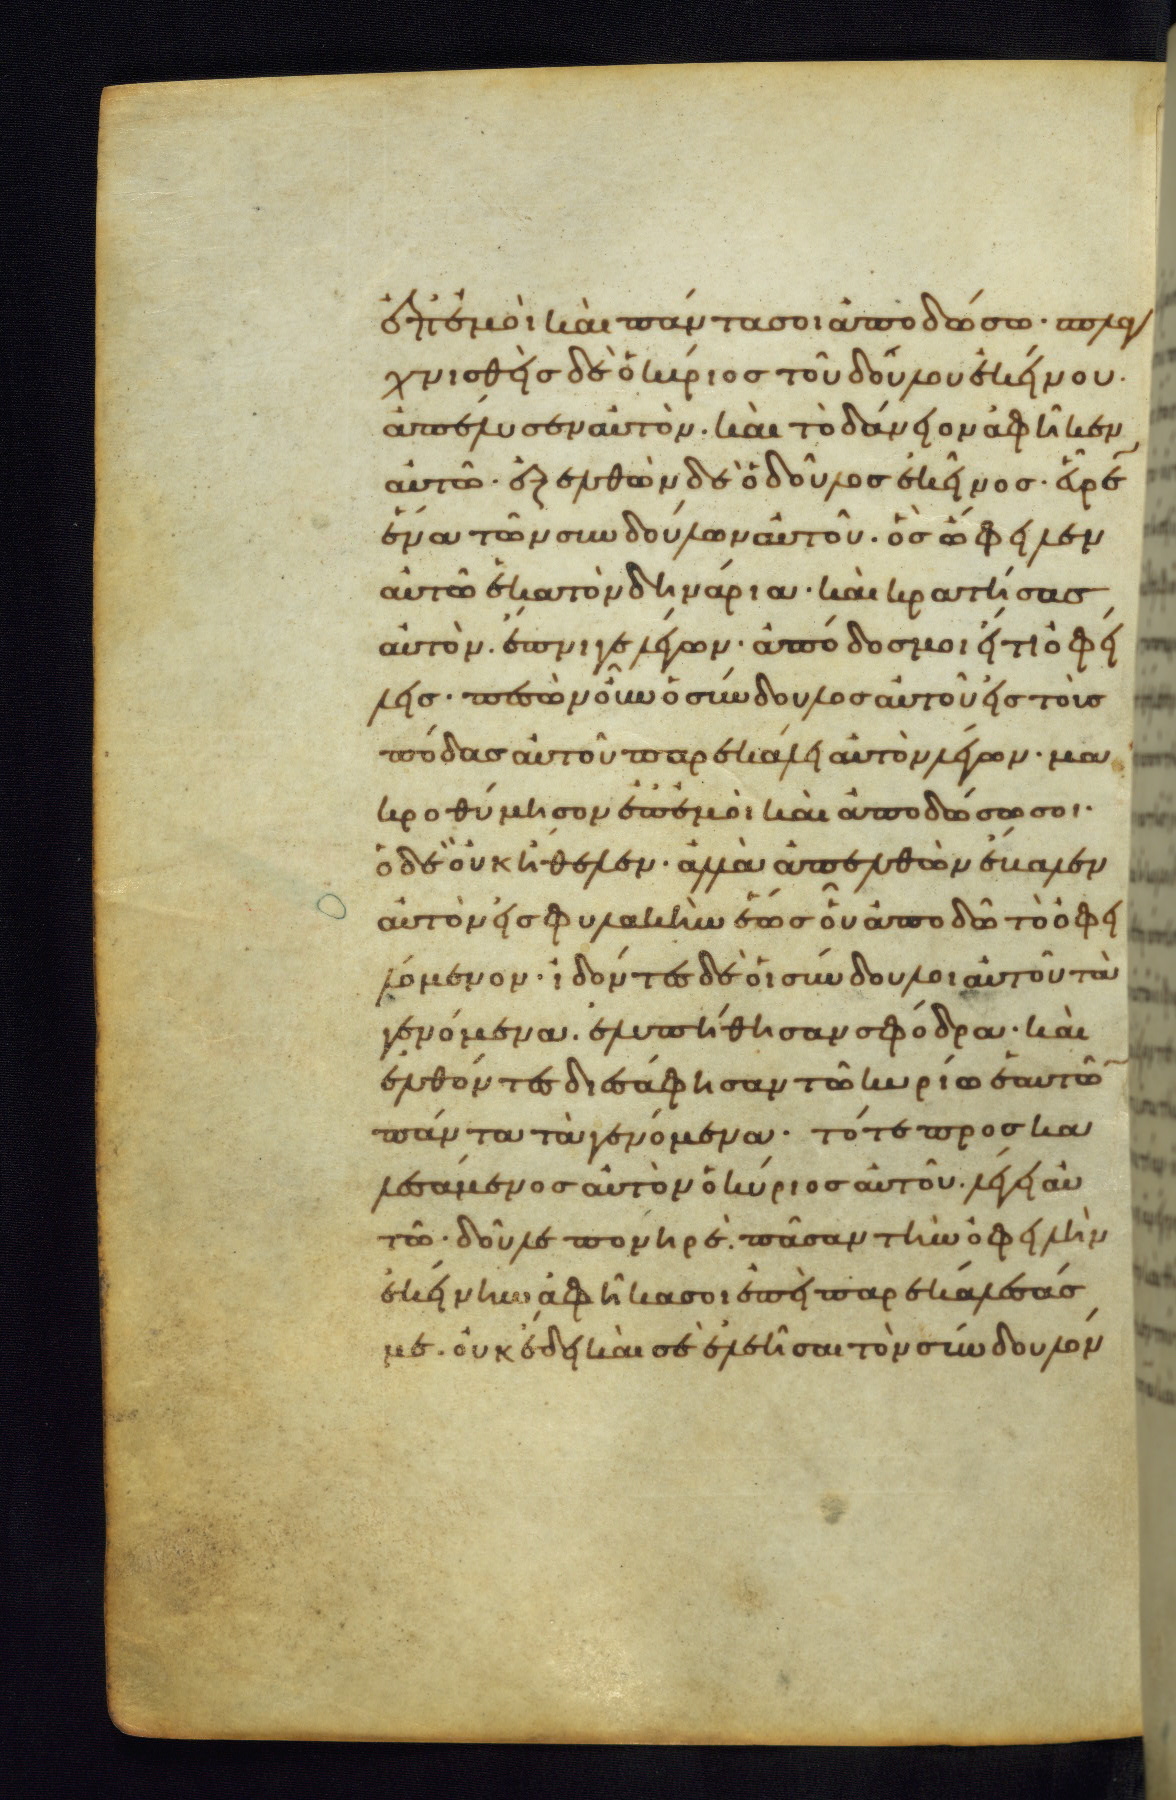 ἐπ' ἐμοὶ καὶ πάντα σοι ἀποδώσω· σπλαγ
χνισθεὶς δὲ ὁ κύριος τοῦ δούλου ἐκείνου·
ἀπέλυσεν αὐτὸν· καὶ τὸ δάνειον ἀφῆκεν
αὐτῶ· ἐξελθὼν δὲ ὁ δοῦλος ἐκεῖνος· εὗρε
ἕνα τῶν συνδούλων αὐτοῦ· ὃς ὤφειλεν
αὐτῶ ἑκατὸν δηνάρια· καὶ κρατήσας
αὐτὸν· ἔπνιγε λέγων· ἀπόδος μοι εἴ τι ὀφεί
λεις· πεσὼν οὖν ὁ σύνδουλος αὐτοῦ εἰς τοὺς
πόδας αὐτοῦ παρεκάλει αὐτὸν λέγων· μα
κροθύμησον ἐπ' ἐμοὶ καὶ ἀποδώσω σοι·
ὁ δὲ οὐκ ἤθελεν· ἀλλὰ ἀπελθὼν ἔβαλεν
αὐτὸν εἰς φυλακὴν ἕως οὗ ἀποδῶ τὸ ὀφει
λόμενον· ἰδόντες δὲ οἱ σύνδουλοι αὐτοῦ τὰ
γενόμενα· ἐλυπήθησαν σφόδρα· καὶ
ἐλθόντες διεσάφησαν τῶ κυρίω ἑαυτῶν
πάντα τὰ γενόμενα· τότε προσκα
λεσάμενος αὐτὸν ὁ κύριος αὐτοῦ· λέγει αὐ
τῶ· δοῦλε πονηρὲ· πᾶσαν τὴν ὀφειλὴν
ἐκείνην ἀφῆκα σοι ἐπεὶ παρεκάλεσάς
με· οὐκ ἔδει καὶ σὲ ἐλεῆσαι τὸν σύνδουλόν